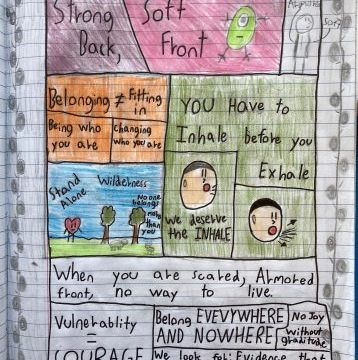 Strong
Back,
Soft
Front
Armored
Soft
Belonging ≠ Fitting
in
Being who
you are
changing
who you are
YOU Have to
Inhale before you
Exhale
Stand
Alone
Wilderness
No one
belongs
more
than
you
We deserve
the INHALE
When you are scared, Armored
front, no way to live.
Vulnerablity
=
COURAGE
Belong EVEVYWHERE
AND NOWHERE
No Joy
without
gratitude
We look for: Evidence that